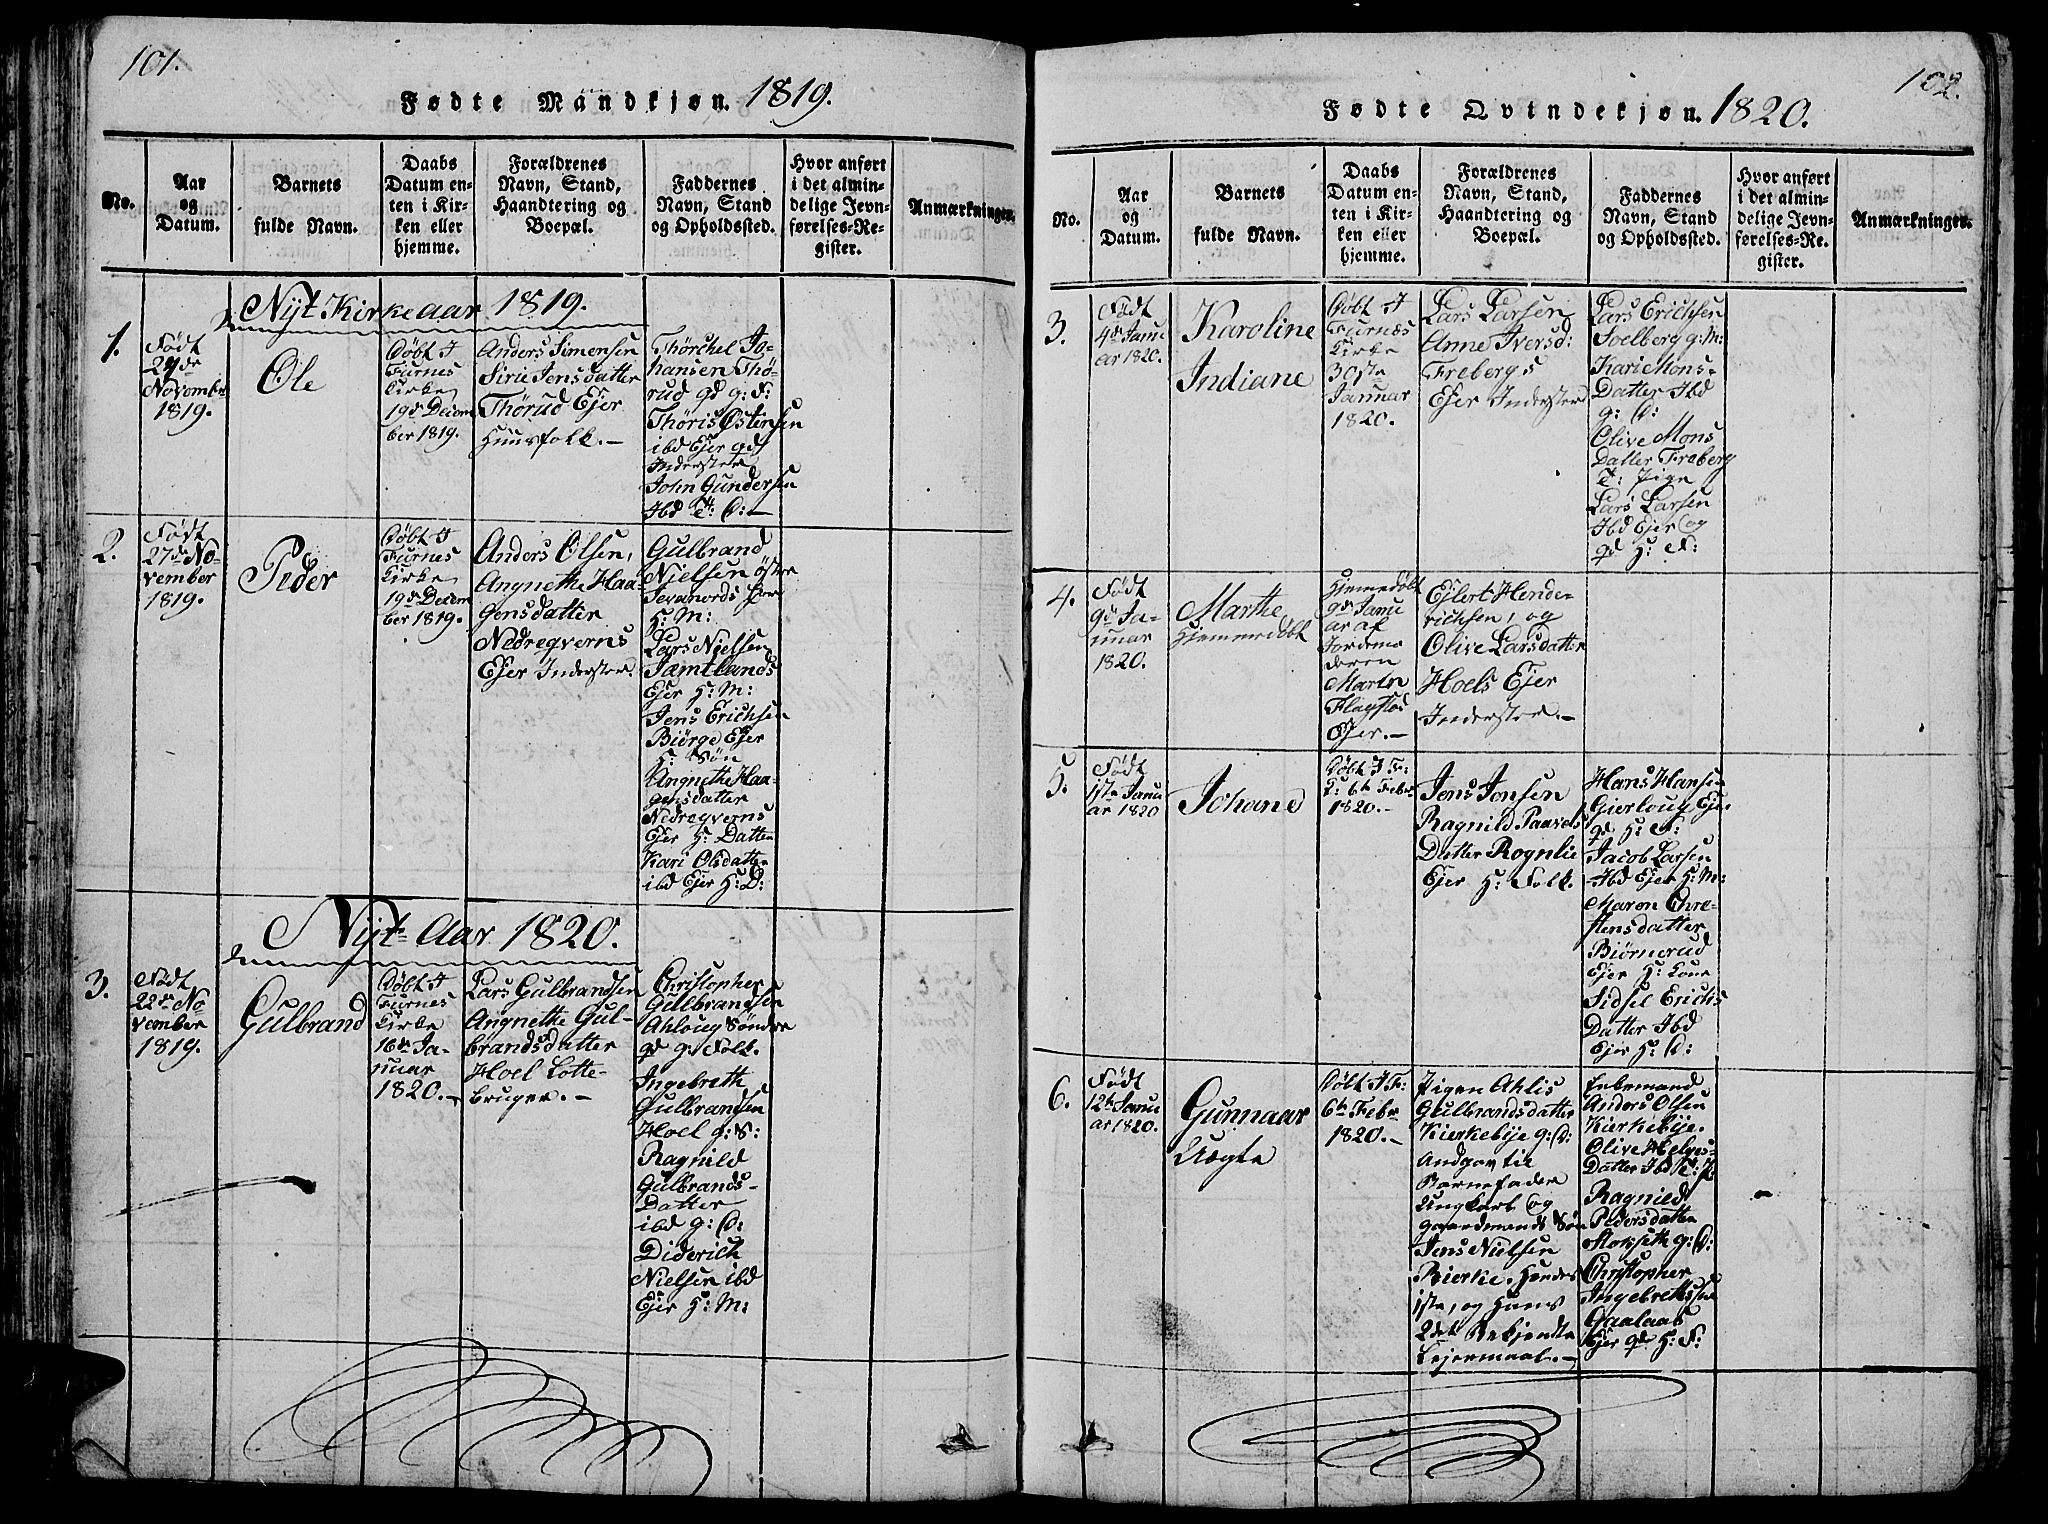 101.
Fødte Mandkjøn. 1819.
No.
Aar
og
Datum.
Barnets
fulde Navn.
Daabs
Datum en-
ten i Kir-
ken eller
hjemme.
Forældrenes
Navn, Stand,
Haandtering og
Boepæl.
Faddernes
Navn, Stand
og Opholdssted.
Hvor anført
i det almin-
delige Jevn-
førelses-Re-
gister.
Anmærkninger.
Nyt Kirke aar 1819.
1.
Født
24de
November
1819.
Ole
Døbt I
Furnes
Kirke
19de Decem
ber 1819.
Anders Simensen
Sirie Jensdatter
Thørud Ejer
Huusfolk.-
Thørchel Jo-
hansen Thø-
rud gd g: F:
Thøris Østensen
ibd Ejer gd
Inderster
John Gundersen
Ibd T: D:-
2.
Født
27de No-
vember
1819.
Peder
Døbt I
Furnes
Kirke
19de Decem
ber 1819.
Anders Olsen,
Angnethe Haa-
gensdatter
Nedreqverns
Ejer Inderster.
Gulbrand
Nielsen øster
H: M:
Lars Nielsen
Jæmtlands
Ejer H: M:
Jens Erichsen
Biørge Ejer
H: Søn
Angnethe Haa-
gensdatter
Nedreqverns
Ejer H: Datter
Kari Olsdatter
ibd Ejer H: D:
Nyt Aar 1820.
3.
Født
22de No
vember
1819.
Gulbrand
Døbt I
Furnes
Kirke
16de Ja-
nuar
1820.-
Lars Gulbrandsen
Angnethe Gul-
brandsdatter
Hoel Lotte-
bruger.-
Christopher
Gulbrandsen
Ahloug Søndre
gd g: Folk.
Ingebreth
Gulbrandsen
Hoel g: S:
Ragnild
Gulbrands-
Datter
ibd g: D:
Diderich
Nielsen ibd
Ejer H: M:
102.
Fødte Qvindekjøn. 1820.
No.
Aar
og
Datum.
Barnets
fulde Navn.
Daabs
Datum en-
ten i Kir-
ken eller
hjemme.
Forældrenes
Navn, Stand,
Haandtering og
Boepæl.
Faddernes
Navn, Stand
og Opholdssted.
Hvor anført
i det almin-
delige Jevn-
førelses-Re-
gister.
Anmærkninger.
3.
Født
4de Janu
ar 1820.
Karoline
Indiane
Døbt I
Furnæs
Kirke
30ste
Januar
1820.
Lars Larsen
Anne Iversd:
Frebergs
Ejer Inderster
Lars Erichsen
Soelberg g: M:
Kari Mons-
Datter Ibd
g: D:
Olive Mons
Datter Freberg
T: Pige
Lars Larsen
Ibd Ejer og
gd H: F:
4.
Født
9de Ja-
nuar
1820.
Marthe
Hjemmedøbt
Hjemmedøbt
9de Janu
ar af
Jordemo
deren
Marin
Flagstas
Ejer.-
Ejlert Hende-
richsen, og
Olive Larsdatter
Hoels Ejer
Inderster.-
5.
Født
1ste Janu
ar 1820
Johane
Døbt I F:
K: 6te Febr
1820.-
Jens Jonsen
Ragnild Paavels
Datter Rognlie
Ejer H: Folk.
Hans Hansen
Gierloug Eje-
gd H: F:
Jacob Larsen
Ibd Ejer H: M:
Maren Chre-
stensdatter
Biørnerud
Ejer H: Kone
Sidsel Erichs
Datter Ibd
Ejer H: D:
6.
Født
12te Janu
ar 1820.
Gunnaar
Uægte
Døbt I F:
6te Febr
1820.-
Pigen Ahlis
Gulbrandsdatter
Kierkebye g: D:
Andgav til
Barnefader
Ungkarl og
gaardmands Søn
Jens Nielsen
Bierke. Hendes
1ste, og Hans
2det Bekjendte
Lejermaal.-
Enkemand
Anders Olsen
Kierkebye.
Olive Helges-
Datter Ibd T: P
Ragnild
Pedersdatter
Stokseth g: D:
Christopher
Ingebrethsen
Gaalaas
Ejer gd H: F: